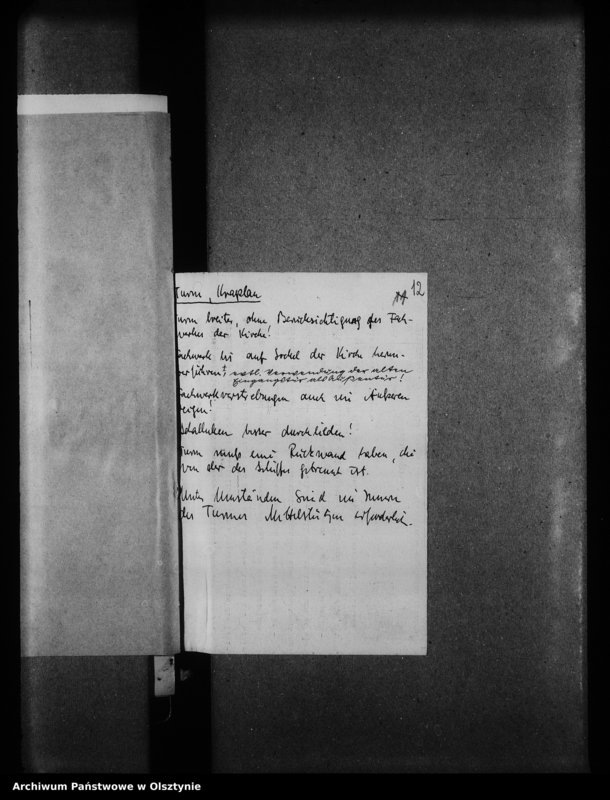 12
Turm, Kraplau
urm breiter, ohne Berücksichtigung des Fach-
werkes der Kirche!
achwerk bis auf Sockel der Kirche herun-
terführen!; evtl. Verwendung der alten
Eingangstür als
achwerkverstrebungen auch im Äußeren
zeigen!
Schalluken besser durchbilden!
urm muß eine Rückwand haben, die
von der des Schiffes getrennt ist.
Unter Umständen sind im Innern
des Turmes Mittelstützen erforderlich.
Archiwum Państwowe w Olsztynie